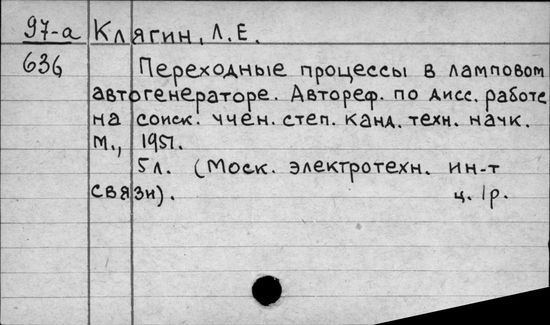 97-а Клягин, Л.Е.
636 Переходные процессы в ламповом
автогенераторе. Автореф. по дисс. работе
на соиск. учен. степ. канд. техн. наук.
М., 1951.
5 л. (Моск. электротехн. ин-т
связи). ц. 1р.